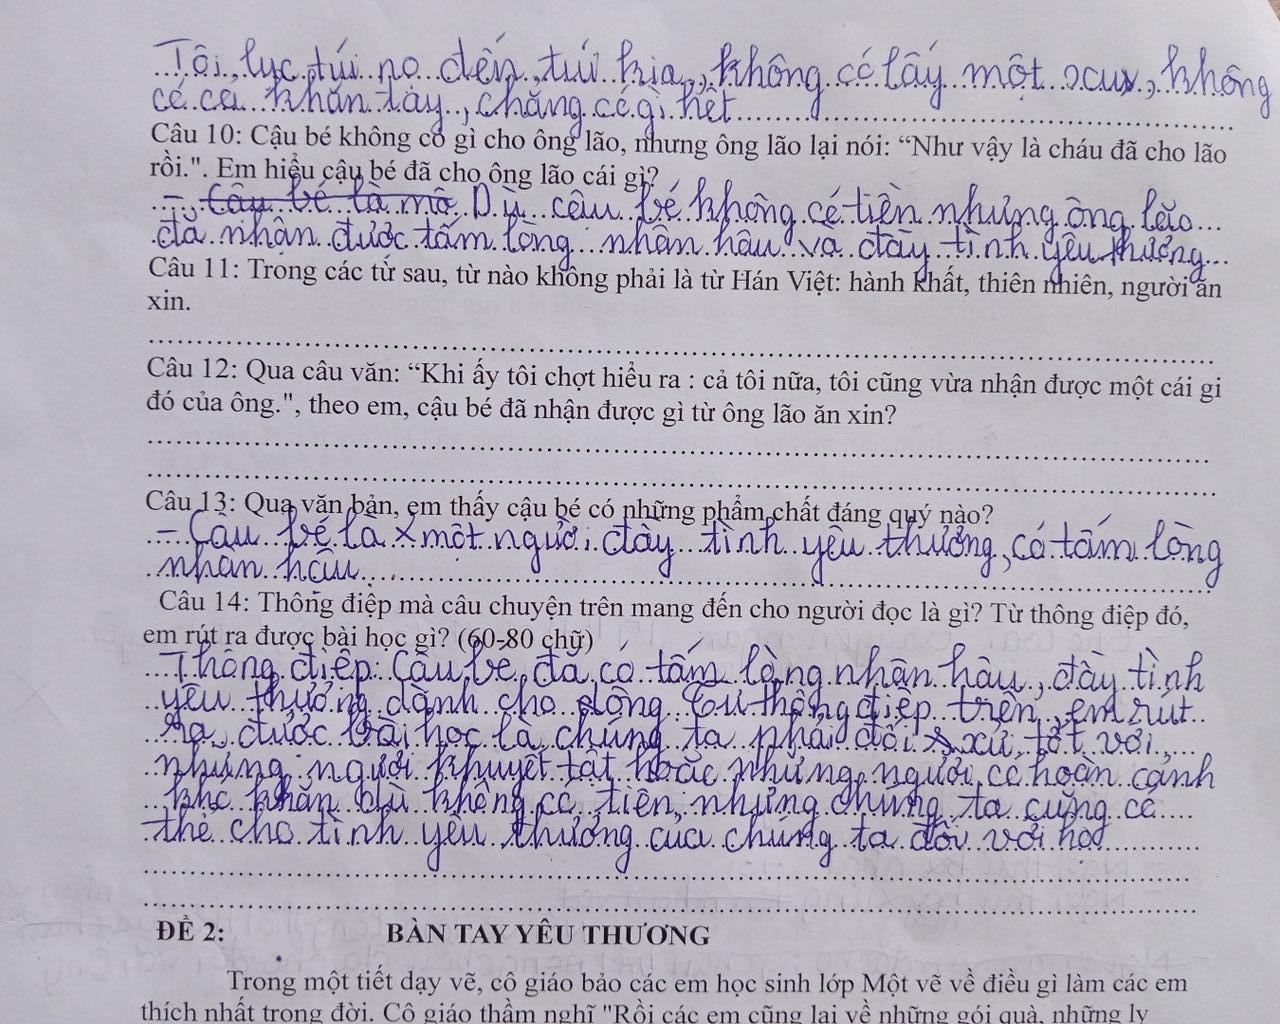 Tôi lục túi nọ đến túi kia, không có lấy một xux, không
có cả khăn tay, chẳng có gì hết
Câu 10: Cậu bé không có gì cho ông lão, nhưng ông lão lại nói: “Như vậy là cháu đã cho lão
rồi.". Em hiểu cậu bé đã cho ông lão cái gì?
- Cậu bé là mộ Dù cậu bé không có tiền nhưng ông lão
đã nhận được tấm lòng nhân hậu và đầy tình yêu thương
Câu 11: Trong các từ sau, từ nào không phải là từ Hán Việt: hành khất, thiên nhiên, người ăn
xin.
Câu 12: Qua câu văn: “Khi ấy tôi chợt hiểu ra : cả tôi nữa, tôi cũng vừa nhận được một cái gi
đó của ông.", theo em, cậu bé đã nhận được gì từ ông lão ăn xin?
Câu 13: Qua văn bản, em thấy cậu bé có những phẩm chất đáng quý nào?
- Cậu bé là một người đầy tình yêu thương, có tấm lòng
nhân hậu
Câu 14: Thông điệp mà câu chuyện trên mang đến cho người đọc là gì? Từ thông điệp đó,
em rút ra được bài học gì? (60-80 chữ)
Thông điệp: Cậu bé đã có tấm lòng nhân hậu, đầy tình
yêu thương dành cho đồng Từ thông điệp trên, em rút
ra được bài học là chúng ta phải đối xử tốt với
những người khuyết tật hoặc những người có hoàn cảnh
khó khăn dù không có tiền, nhưng chúng ta cũng có
thể cho tình yêu thương của chúng ta đối với họ
ĐỀ 2: BÀN TAY YÊU THƯƠNG
Trong một tiết dạy vẽ, cô giáo bảo các em học sinh lớp Một vẽ về điều gì làm các em
thích nhất trong đời. Cô giáo thầm nghĩ "Rồi các em cũng lại vẽ những gói quà, những ly